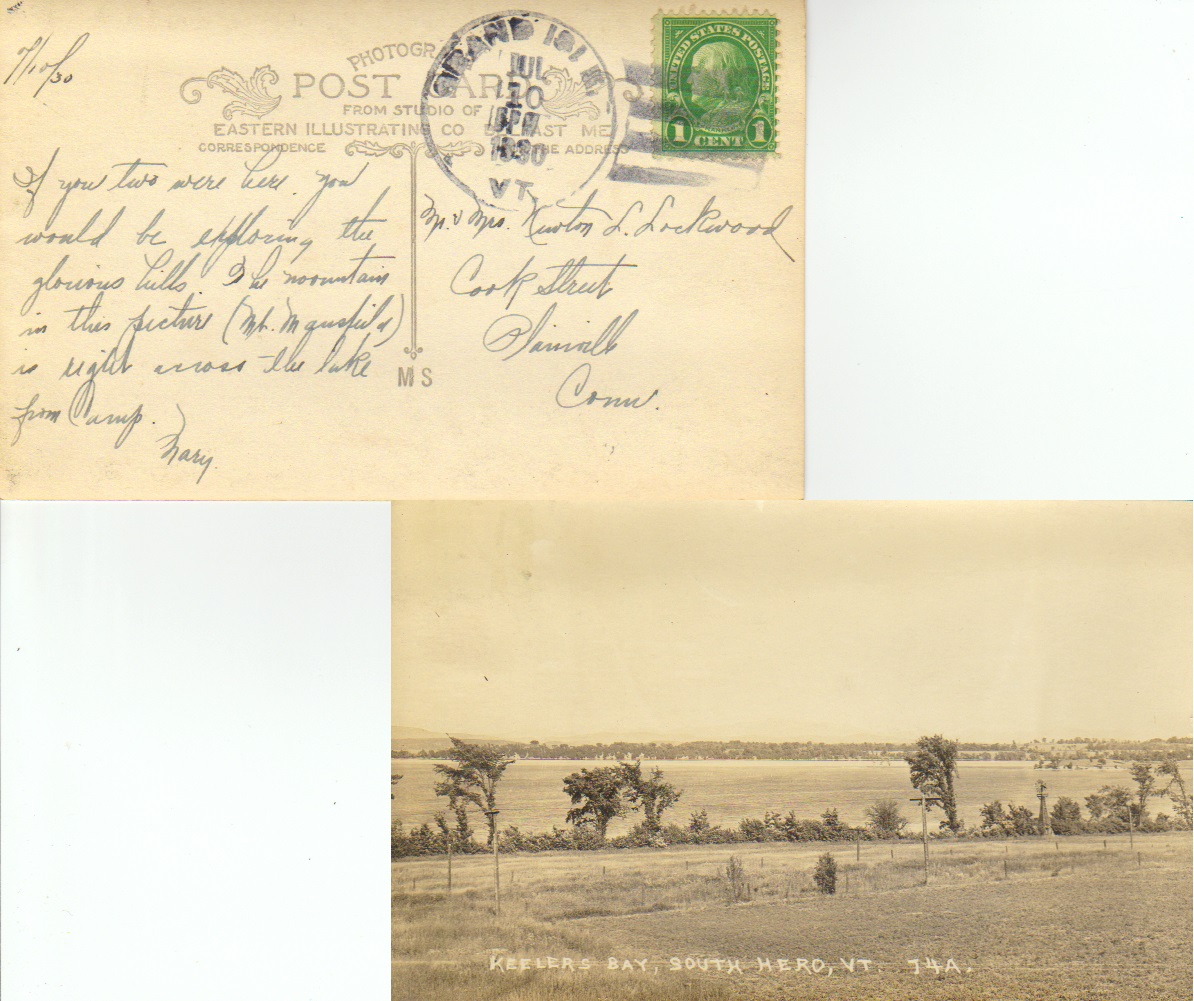 7/10/30
PHOTOGR
POST CARD
FROM STUDIO OF
EASTERN ILLUSTRATING CO BELFAST ME
CORRESPONDENCE
THE ADDRESS
GRAND ISLE
JUL
10
PM
1930
VT.
UNITED STATES POSTAGE
1 1
CENT
If you two were here, you
would be exploring the
glorious hills. The mountain
in this picture (Mt. Mansfield)
is right across the lake
from Camp.
Mary.
Mr. & Mrs. Newton L. Lockwood
Cook Street
Plainville
Conn.
MS
KEELERS BAY, SOUTH HERO, VT. 74A.